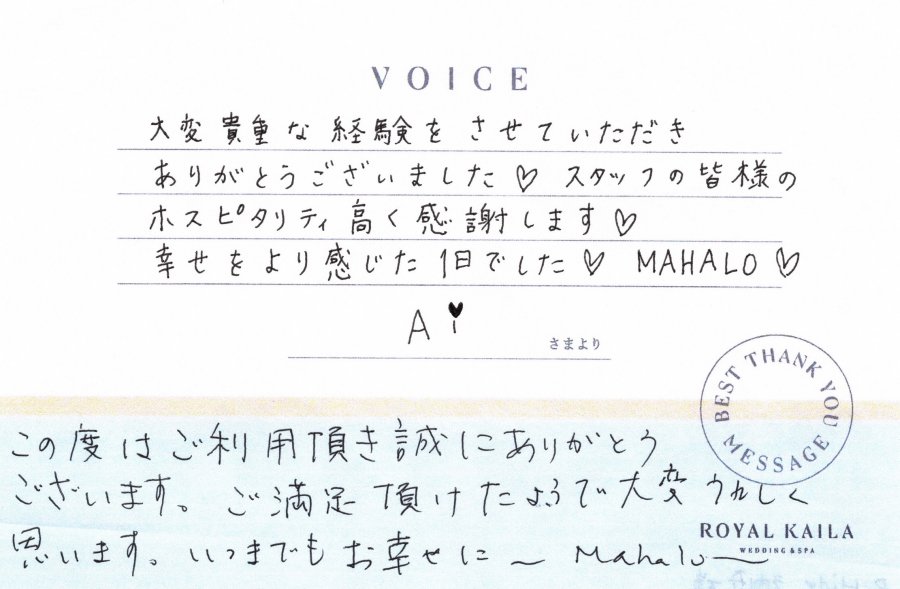 VOICE
大変貴重な経験をさせていただき
ありがとうございました♡ スタッフの皆様の
ホスピタリティ高く感謝します♡
幸せをより感じた1日でした♡ MAHALO♡
Ai
さまより
BEST THANK YOU MESSAGE
この度はご利用頂き誠にありがとう
ございます。ご満足頂けたようで大変うれしく
思います。いつまでもお幸せに〜 Mahalo〜
ROYAL KAILA
WEDDING & SPA